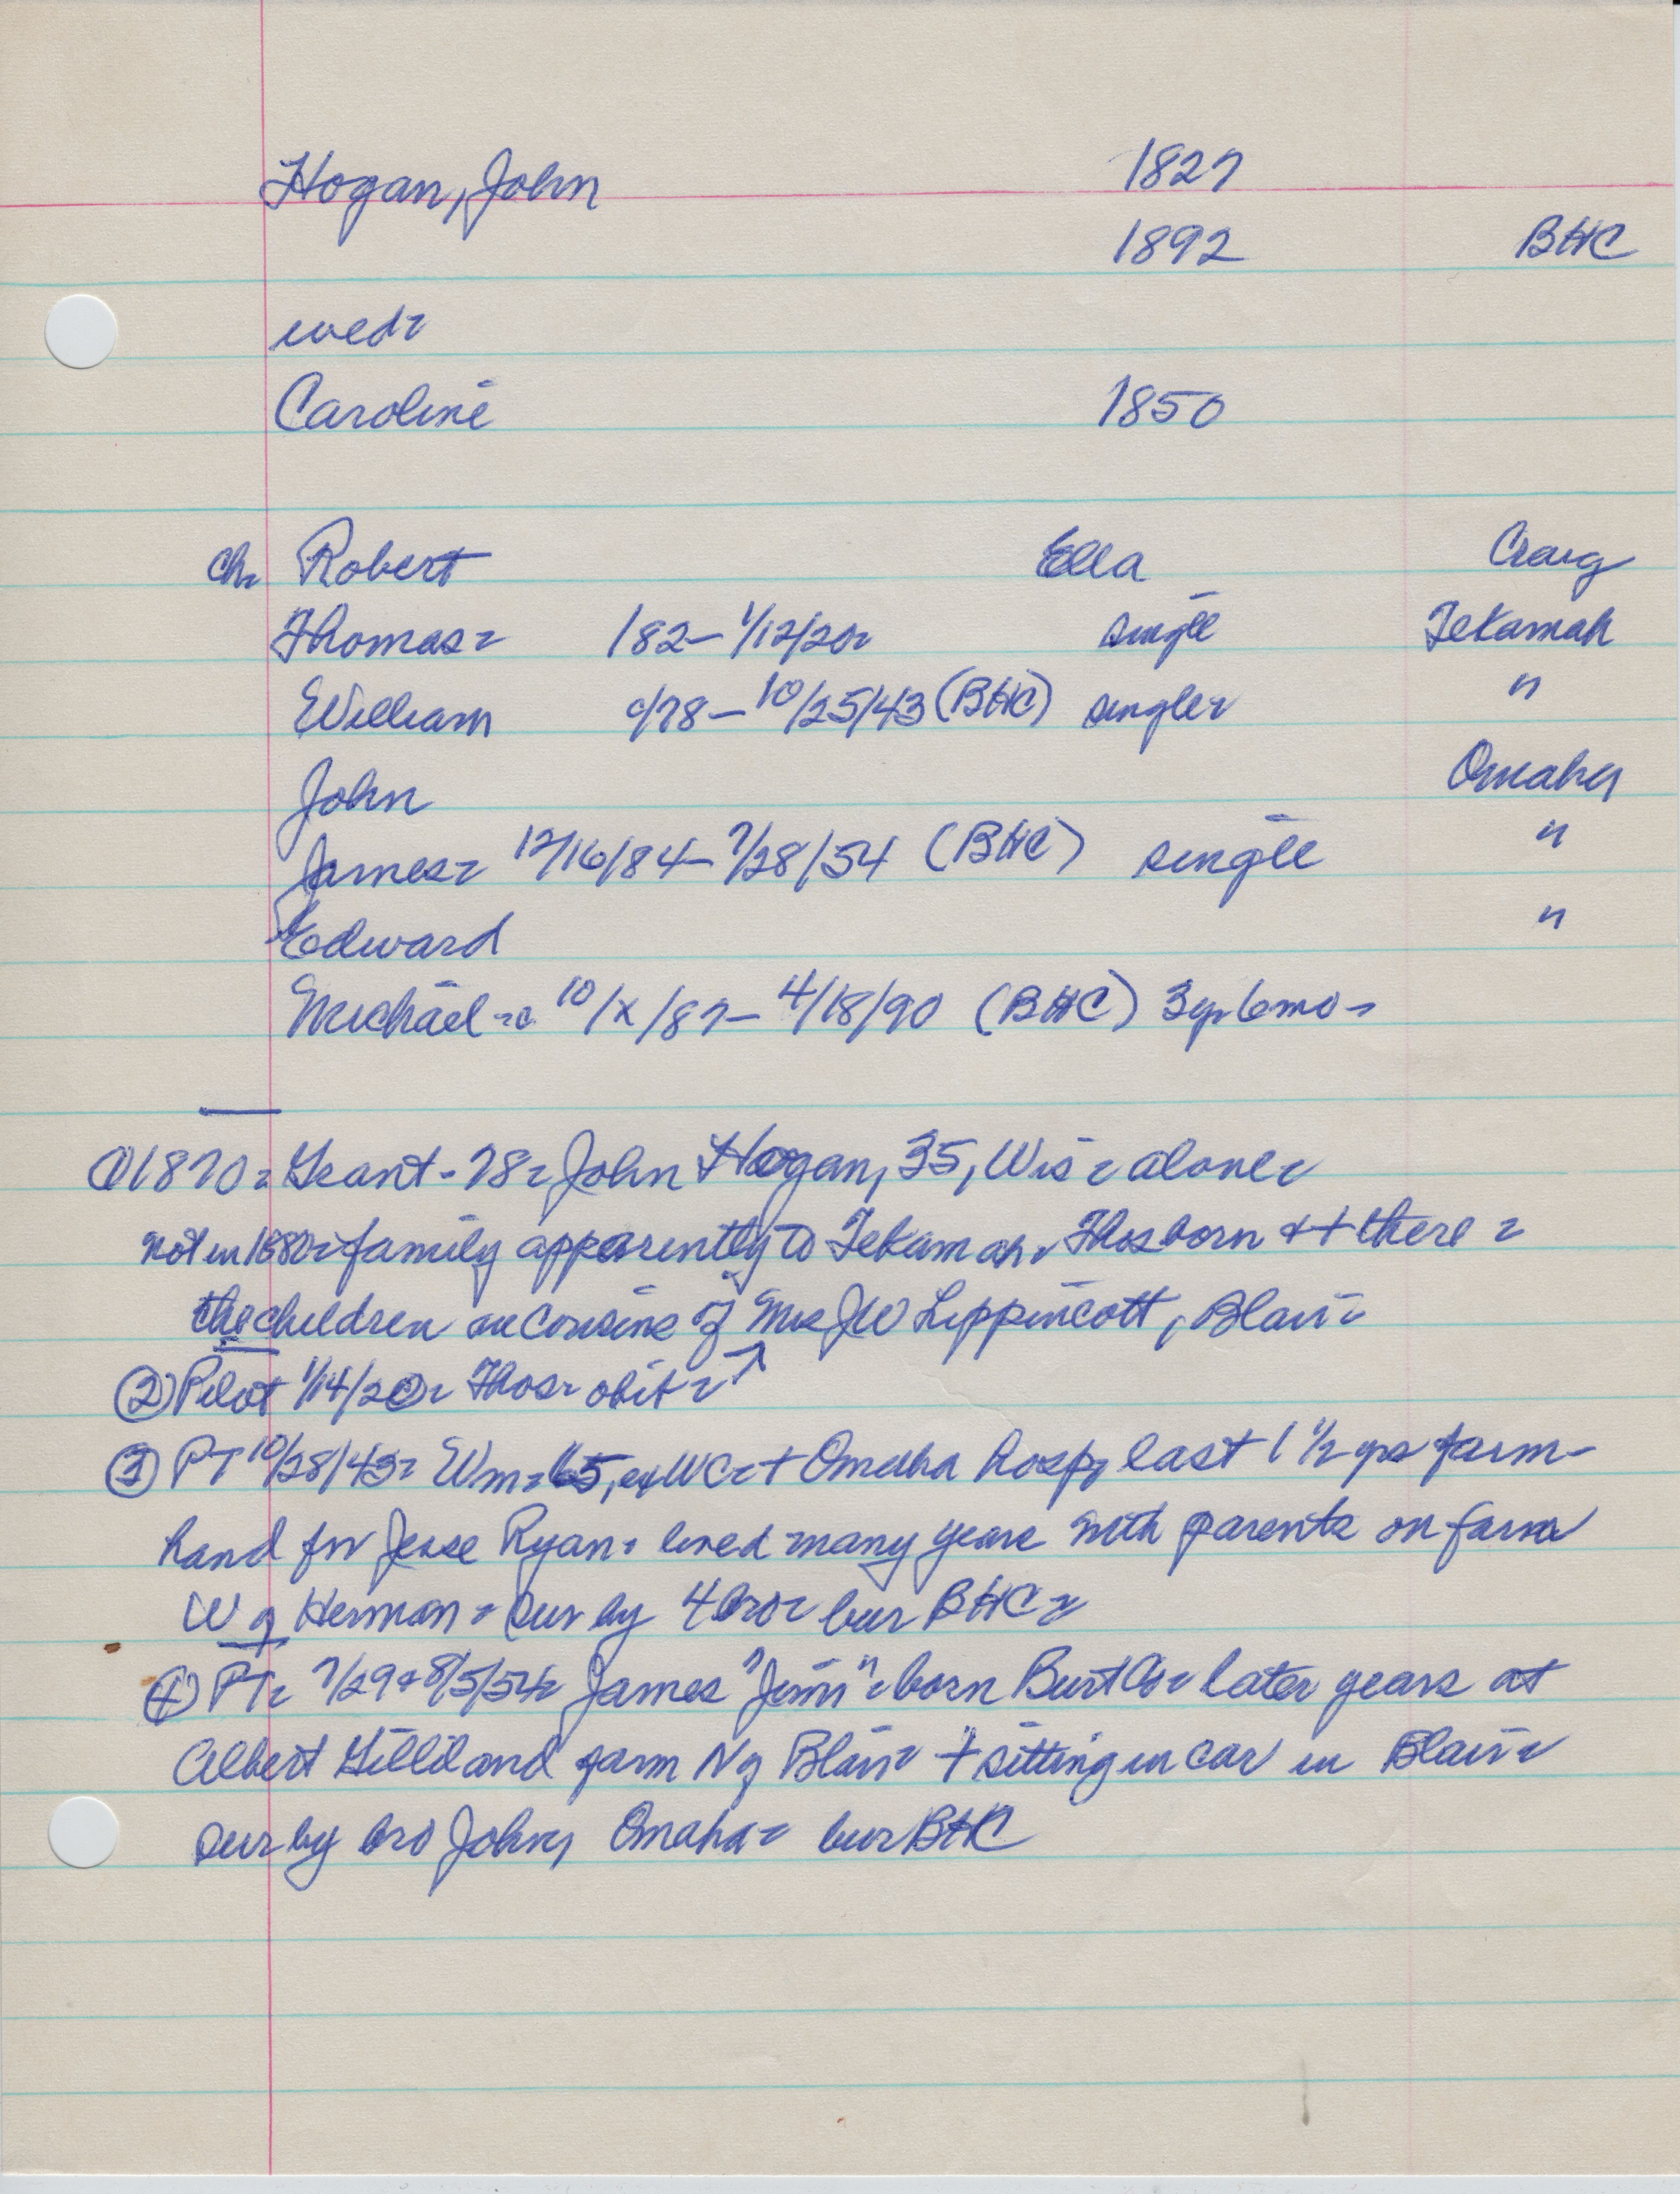 Hogan, John 1827
1892 BHC
wed-
Caroline 1850
ch- Robert Ella Craig
Thomas- 182- 1/12/20- single Tekamah
William c/78- 10/25/43 (BHC) single- "
John Omaha
James- 12/16/84- 7/28/54 (BHC) single "
Edward "
Michael -c 10/x/87- 4/18/90 (BHC) 3yr 6mo-
① 1870- Grant-78- John Hogan, 35, Wis- alone-
not in 1880- family apparently to Tekamah- Thos born & + there-
the children are cousins of Mrs JW Lippincott, Blair-
② Pilot 1/14/20- Thos- obit- ↗
③ PT 10/28/43- Wm- 65, ex WC- + Omaha hosp, last 1 1/2 yrs farm-
hand for Jesse Ryan- lived many years with parents on farm
W of Herman- sur by 4 bro- bur BHC-
④ PT- 7/29 & 8/5/54- James "Jim"- born Burt Co- later years at
Albert Gilliland farm N of Blair- + sitting in car in Blair-
sur by bro John, Omaha- bur BHC